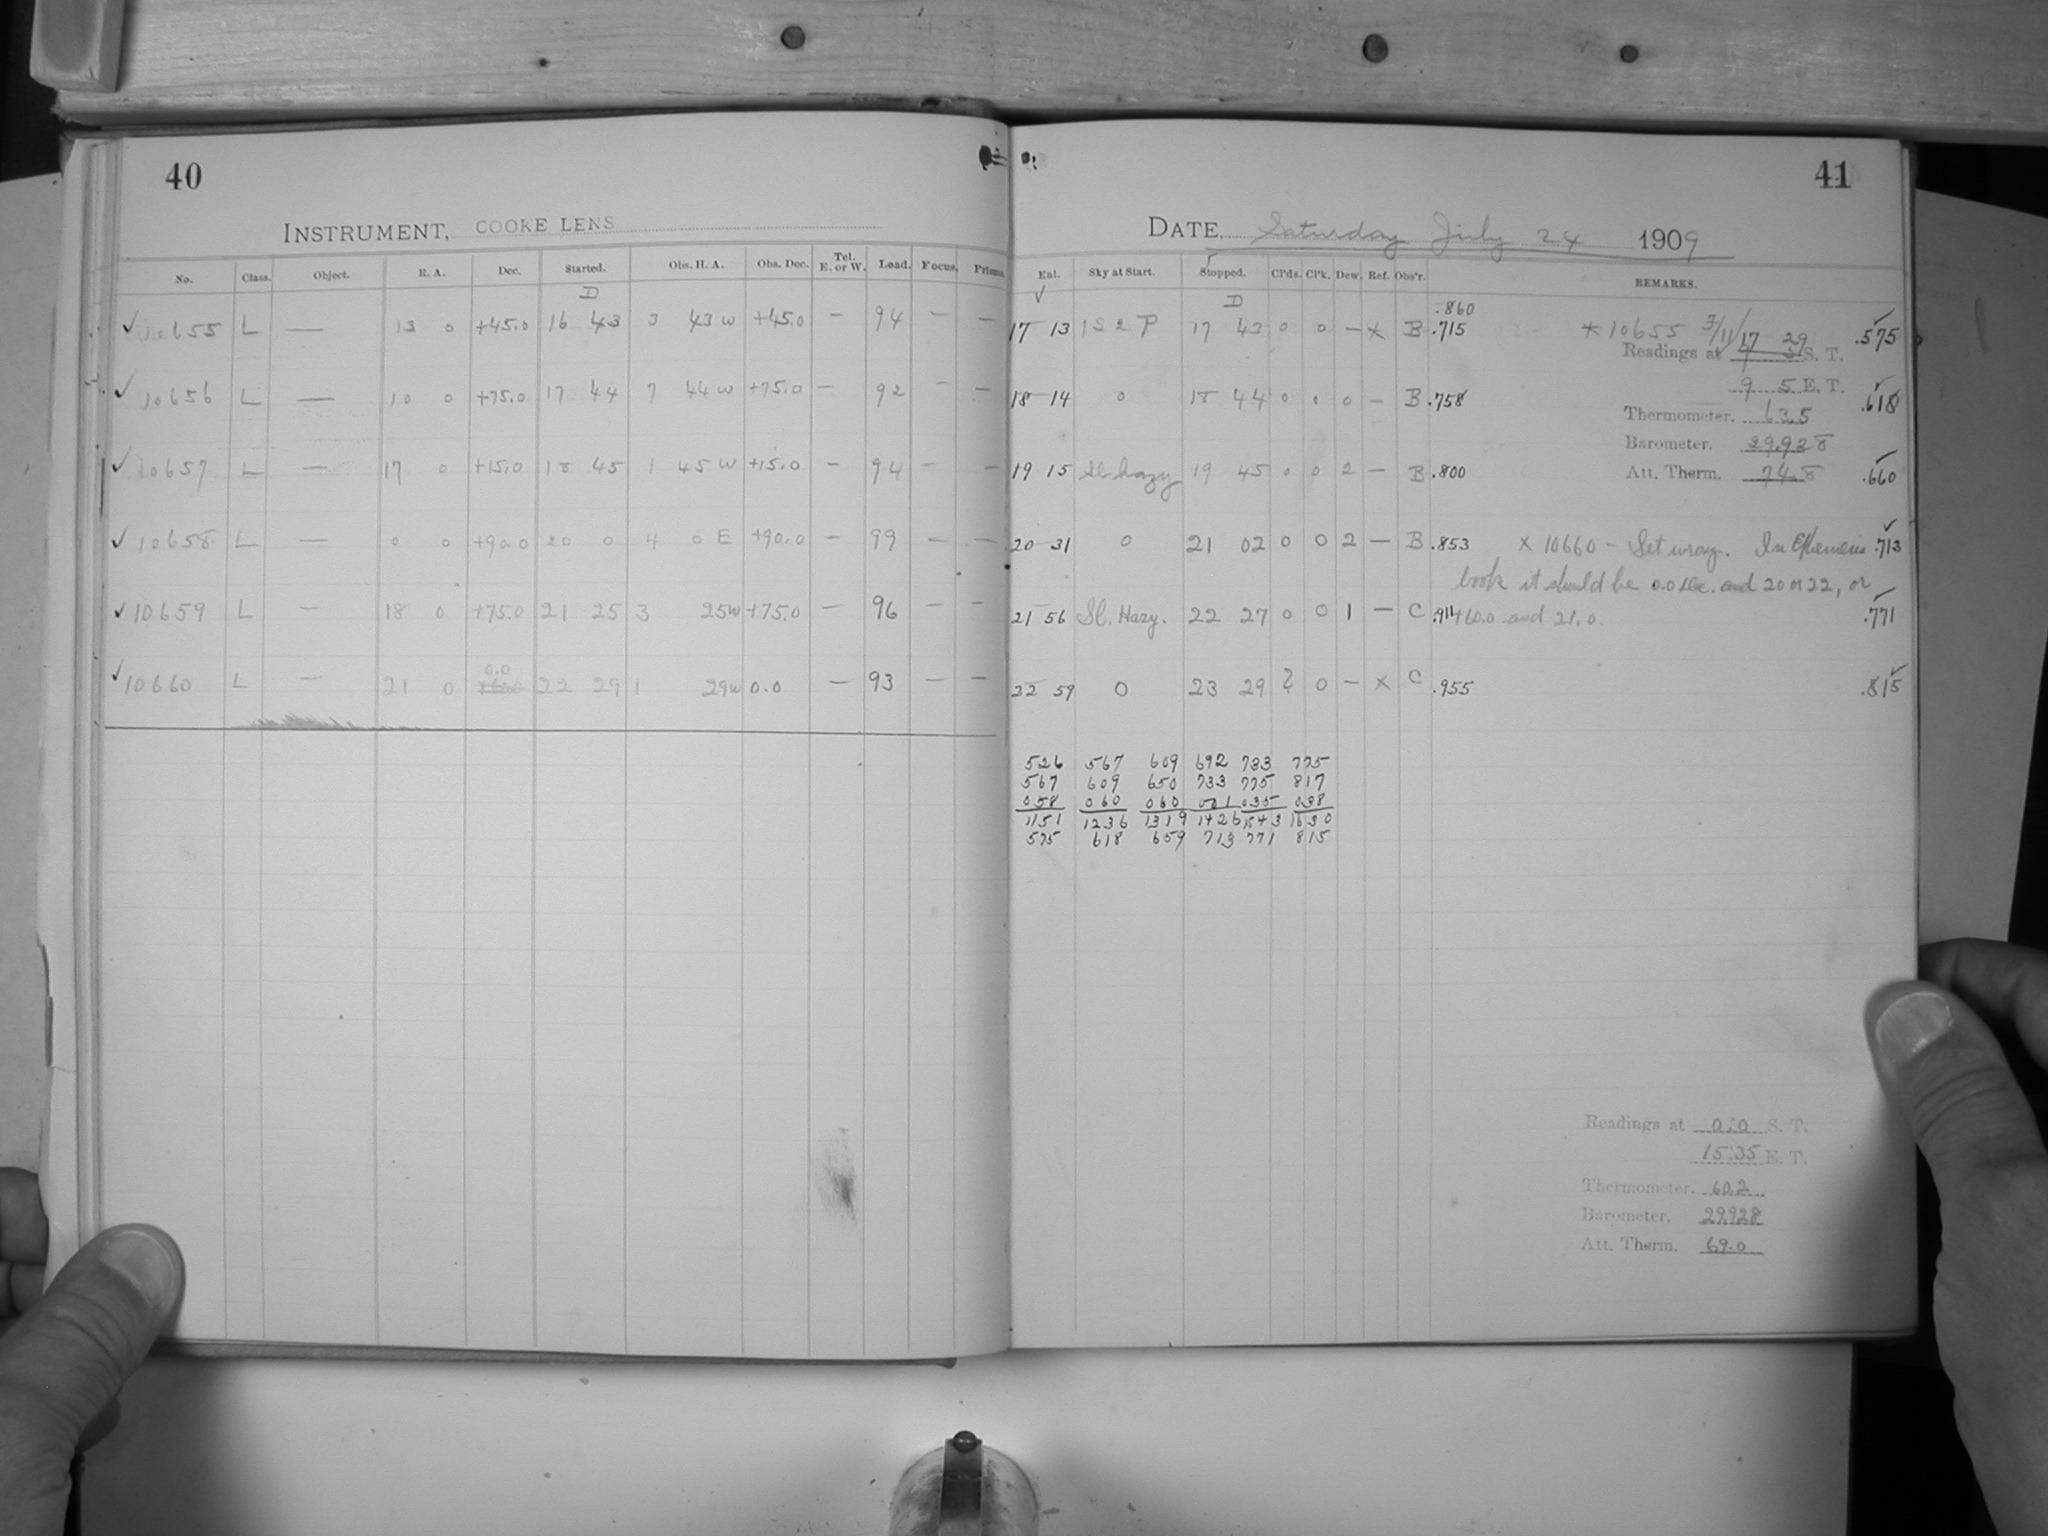 40
INSTRUMENT, COOKE LENS
No. Class. Object. R. A. Dec. Started. Obs. H. A. Obs. Dec. Tel. E. or W. Load. Focus. Prisms.
D
✓ 10655 L — 13 0 +45.0 16 43 3 43 W +45.0 — 94 — —
✓ 10656 L — 10 0 +75.0 17 44 7 44 W +75.0 — 92 — —
✓ 10657 L — 17 0 +15.0 18 45 1 45 W +15.0 — 94 — —
✓ 10658 L — 0 0 +90.0 20 0 4 0 E +90.0 — 99 — —
✓ 10659 L — 18 0 +75.0 21 25 3 25 W +75.0 — 96 — —
0.0
✓ 10660 L — 21 0 22 29 1 29 W 0.0 — 93 — —
41
DATE, Saturday July 24 1909
Ent. Sky at Start. Stopped. Cl'ds. Cl'k. Dew. Ref. Obs'r. REMARKS.
✓ D .860
17 13 1 S 2 P 17 43 0 0 — × B .715 * 10655 3/11/ ✓ .575
Readings at 17 29 S. T.
9 5 E. T.
18 14 0 18 44 0 0 0 — B .758 ✓ .618
Thermometer. 63.5
Barometer. 29.928
19 15 Sl. hazy 19 45 0 0 2 — B .800 Att. Therm. 74.8 ✓ .660
20 31 0 21 02 0 0 2 — B .853 × 10660 – Set wrong. In Ephemeris ✓ .713
book it should be 0.0 Dec. and 20 or 22, or
21 56 Sl. Hazy. 22 27 0 0 1 — C .911 +60.0 and 21.0. ✓ .771
22 59 0 23 29 2 0 — × C .955 ✓ .815
526 567 609 692 733 775
567 609 650 733 775 817
058 060 060 001 035 038
1151 1236 1319 1426 1543 1630
575 618 659 713 771 815
Readings at 0:0 S. T.
15:35 E. T.
Thermometer. 60.2
Barometer. 29.928
Att. Therm. 69.0